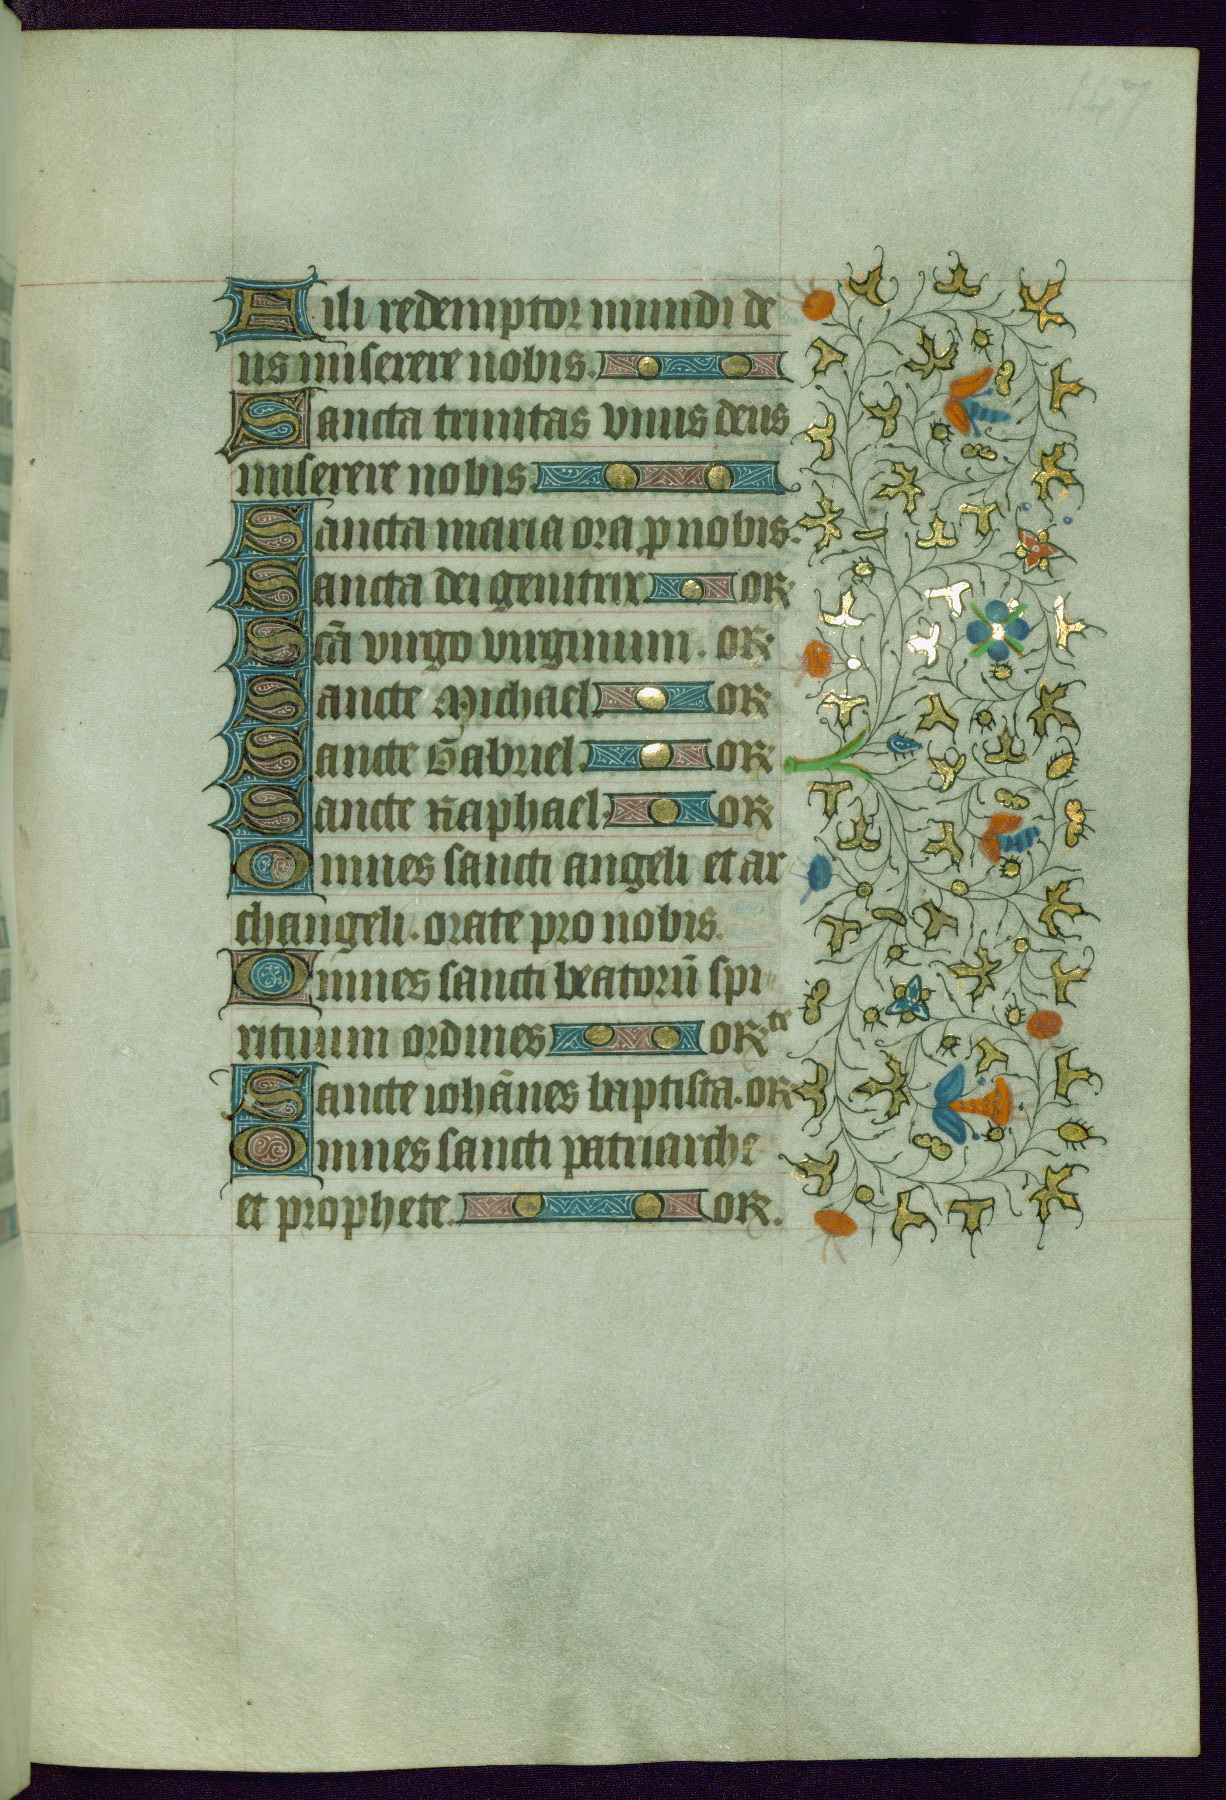 147
Fili redemptor mundi de
us miserere nobis.
Sancta trinitas unus deus
miserere nobis.
Sancta maria ora ꝓ nobis.
Sancta dei genitrix. or.
Sctā virgo virginum. or.
Sancte Michael. or.
Sancte Gabriel. or.
Sancte Raphael. or
Omnes sancti angeli et ar
changeli. orate pro nobis.
Omnes sancti beatorū spi
rituum ordines or te
Sancte iohānes baptista. or.
Omnes sancti patriarche
et prophete. or.